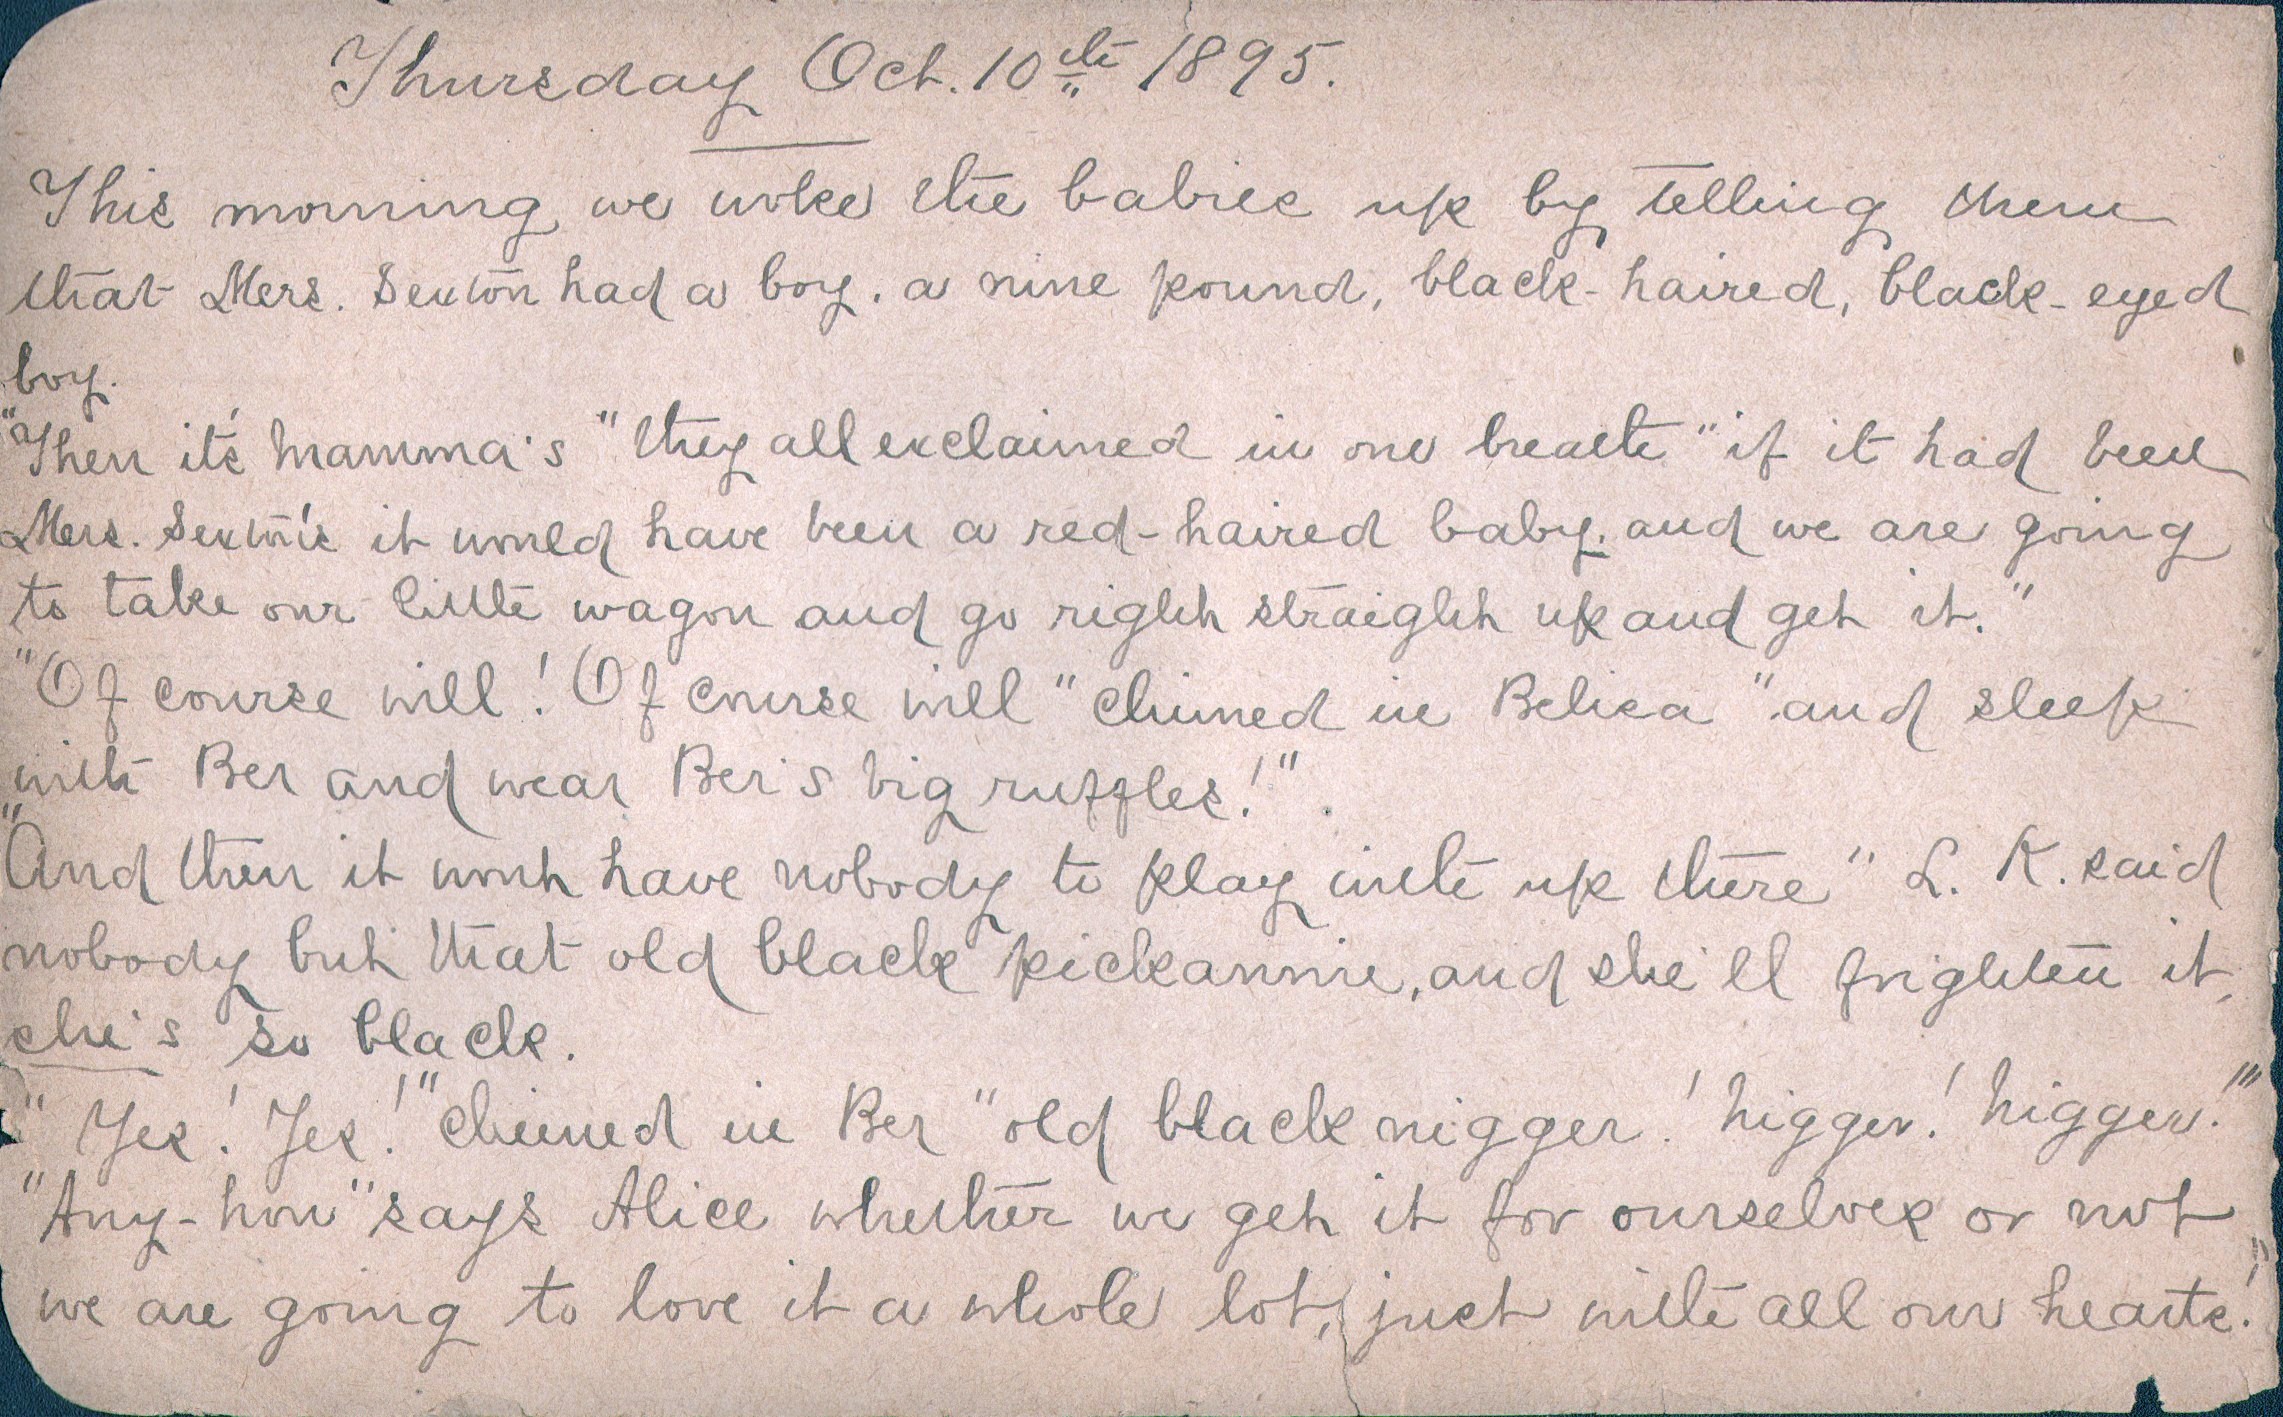 Thursday Oct. 10th 1895.
This morning we woke the babies up by telling them
that Mers. Sexton had a boy. a nine pound, black-haired, black-eyed
boy.
"Then it's mamma's" they all exclaimed in one breath "if it had been
Mers. Sexton's it would have been a red-haired baby. and we are going
to take our little wagon and go right straight up and get it."
"Of course will! Of course will" chimed in Belica "and sleep
with Ber and wear Ber's big ruffles!"
"And then it wont have nobody to play with up there" L. K. said
nobody but that old black pickaninie, and she'll frighten it,
she's so black.
"Yes! Yes!" chimed in Ber "old black nigger! nigger! nigger!"
"Any-how" says Alice whether we get it for ourselves or not
we are going to love it a whole lot, just with all our hearts!"